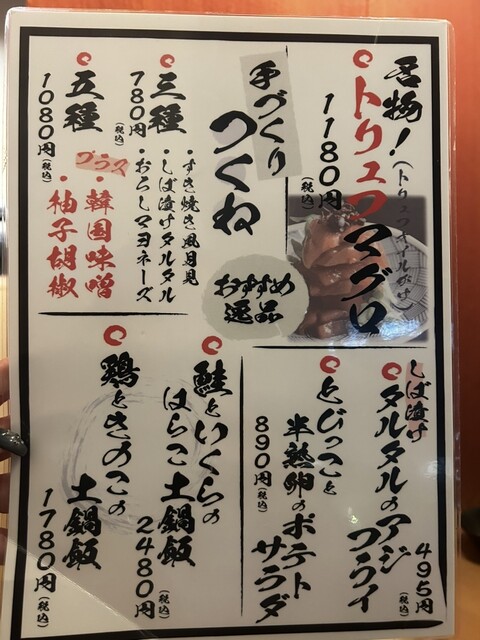 名物!
トリュフマグロ
(トリュフオイルがけ)
1180円(税込)
手づくり
つくね
三種
780円(税込)
・すき焼き風月見
・しば漬けタルタル
・おろしマヨネーズ
五種
1080円(税込)
プラス
・韓国味噌
・柚子胡椒
おすすめ
逸品
しば漬け
タルタルの
アジフライ
495円(税込)
とびっこと
半熟卵の
ポテトサラダ
890円(税込)
鮭といくらの
はらこ土鍋飯
2480円(税込)
鶏ときのこの
土鍋飯
1780円(税込)